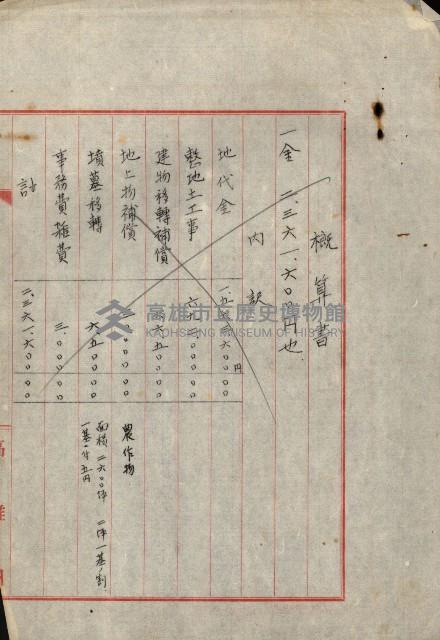 概算書
一金 二、三六一、六〇〇円也
内訳
地代金
整地土工事
建物移轉補償
地上物補償 農作物
墳墓移轉 六、五〇〇〇〇 面積二六〇〇坪 二坪一基ノ割
一基ニ付五円
事務費雑費 三、〇〇〇〇〇
計 二、三六一、六〇〇〇〇
高雄
高雄市立歷史博物館
KAOHSIUNG MUSEUM OF HISTORY